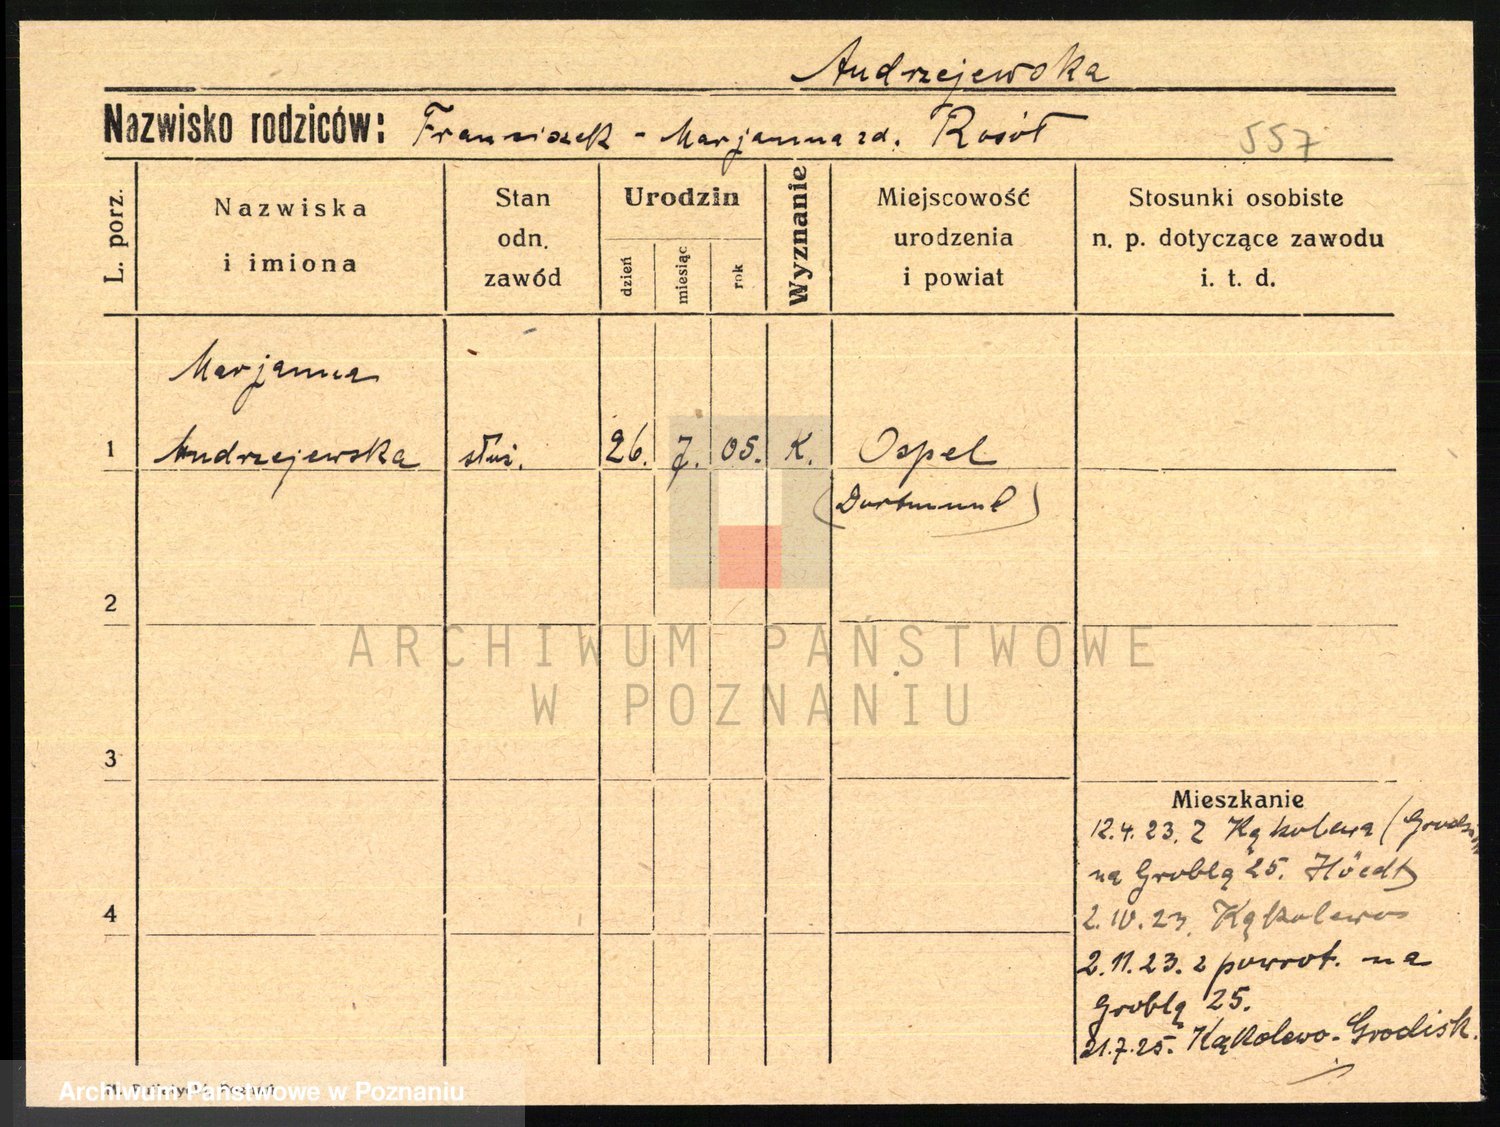 Andrzejewska
Nazwisko rodziców: Franciszek - Marjanna zd. Rosół
557
L. porz.
Nazwiska
i imiona
Stan
odn.
zawód
Urodzin
dzień
miesiąc
rok
Wyznanie
Miejscowość
urodzenia
i powiat
Stosunki osobiste
n. p. dotyczące zawodu
i. t. d.
Marjanna
1 Andrzejewska służ. 26. 7. 05. K. Ospel
(Dortmund)
2
3
4
Mieszkanie
12.4.23. Z Kąkolewa (Grodzisk
na Groblą 25.
2.IV.23. Kąkolewo
2.11.23. z powrot. na
Groblą 25.
21.7.25. Kąkolewo-Grodisk.
ARCHIWUM PAŃSTWOWE
W POZNANIU
Archiwum Państwowe w Poznaniu